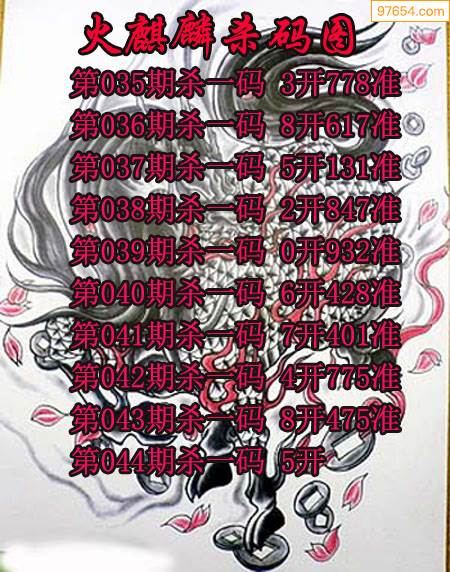 97654.com
火麒麟杀码图
第035期杀一码 3开778准
第036期杀一码 8开617准
第037期杀一码 5开131准
第038期杀一码 2开847准
第039期杀一码 0开932准
第040期杀一码 6开428准
第041期杀一码 7开401准
第042期杀一码 4开775准
第043期杀一码 8开475准
第044期杀一码 5开